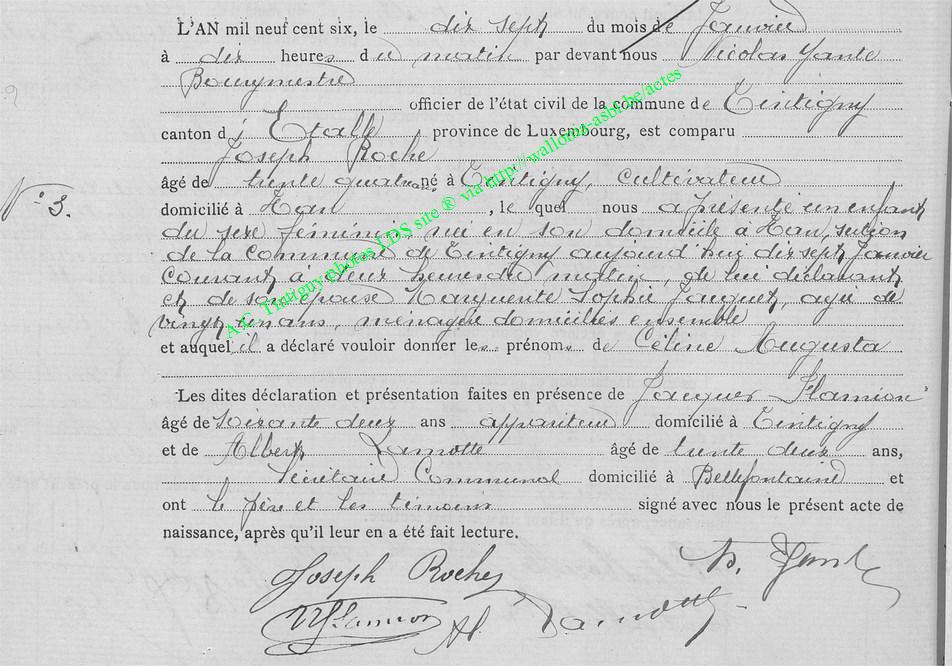 L'AN mil neuf cent six, le dix sept du mois de Janvier
à dix heures du matin par devant nous Nicolas Yante
Bourgmestre
officier de l'état civil de la commune de Tintigny
canton d' Etalle province de Luxembourg, est comparu
Joseph Roche
âgé de trente quatre ans né à Tintigny, cultivateur
N° 3.
domicilié à Han, le quel nous a présenté un enfant
du sexe féminin, née en son domicile à Han, section
de la commune de Tintigny aujourd'hui dix sept Janvier
courant à deux heures du matin, de lui déclarant
et de son épouse Marguerite Sophie Jacquet, agée de
vingt un ans, ménagère domiciliés ensemble
et auquel il a déclaré vouloir donner les prénoms de Céline Augusta
Les dites déclaration et présentation faites en présence de Jacques Flamion
âgé de soixante deux ans appariteur domicilié à Tintigny
et de Albert Lamotte âgé de trente deux ans,
Sécrétaire Communal domicilié à Bellefontaine et
ont le père et les témoins signé avec nous le présent acte de
naissance, après qu'il leur en a été fait lecture.
Joseph Roche N. Yante
Flamion A. Lamotte
A.C. Tintigny photos LDS site ® via http://wallonia-asbl.be/actes